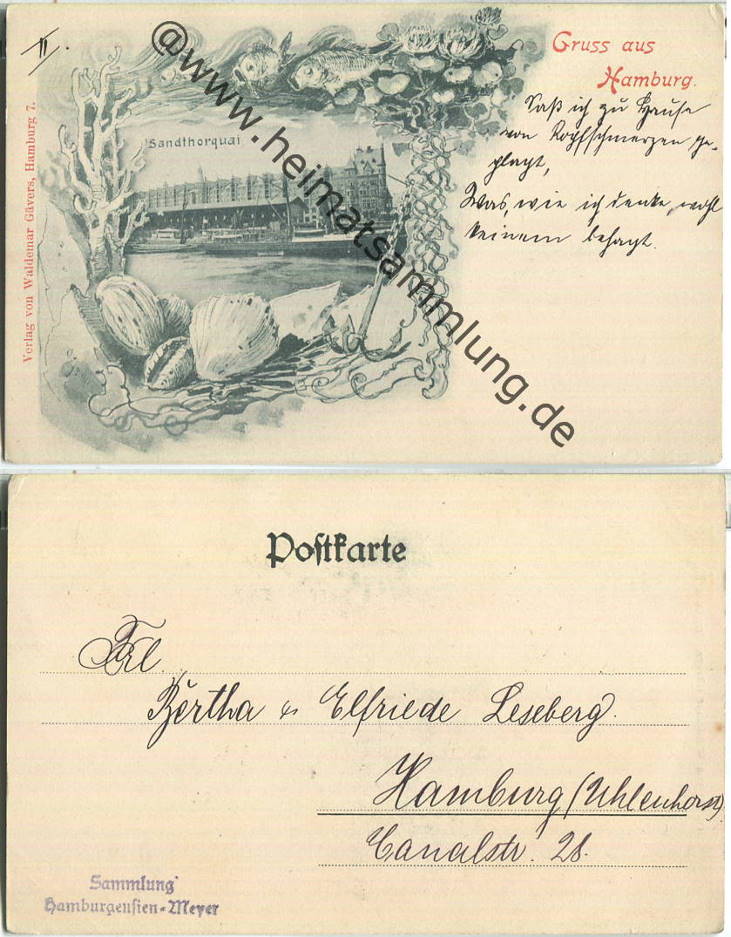 II.
Gruss aus
Hamburg.
Sandthorquai
Verlag von Waldemar Gävers, Hamburg 7.
Saß ich zu Hause
von Kopfschmerzen ge-
plagt,
Was, wie ich denke, wohl
keinem behagt.
@www.heimatsammlung.de
Postkarte
Frl.
Bertha u Elfriede Leseberg.
Hamburg (Uhlenhorst)
Canalstr. 28.
Sammlung
Hamburgensien-Meyer